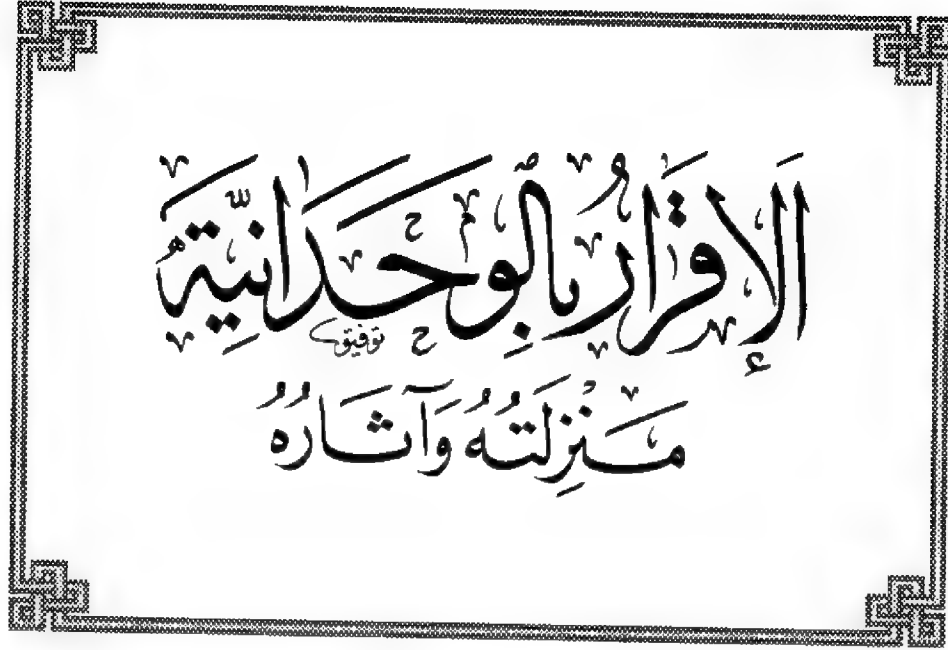 الإقرار بالوحدانية
توفيق
منزلته وآثاره